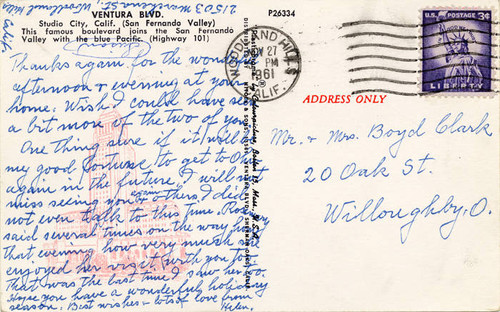 VENTURA BLVD.
Studio City, Calif. (San Fernando Valley)
This famous boulevard joins the San Fernando
Valley with the blue Pacific. (Highway 101)
P26334
Thanks again for the wonderful
afternoon & evening at your
home. Wish I could have seen
a bit more of the two of you.
One thing sure if it will be
my good fortune to get to Ohio
again in the future I will not
miss seeing you or others I did
not even talk to this time.
said several times on the way home
that evening how very much she
enjoyed her visit with you too.
That was the last time I saw her too.
Hope you have a wonderful holiday
season. Best wishes & lots of love from
Helen.
WOODLAND HILLS
27
PM
1961
CALIF.
U.S. POSTAGE
3¢
LIBERTY
ADDRESS ONLY
Mr. & Mrs. Boyd Clark
20 Oak St.
Willoughby, O.